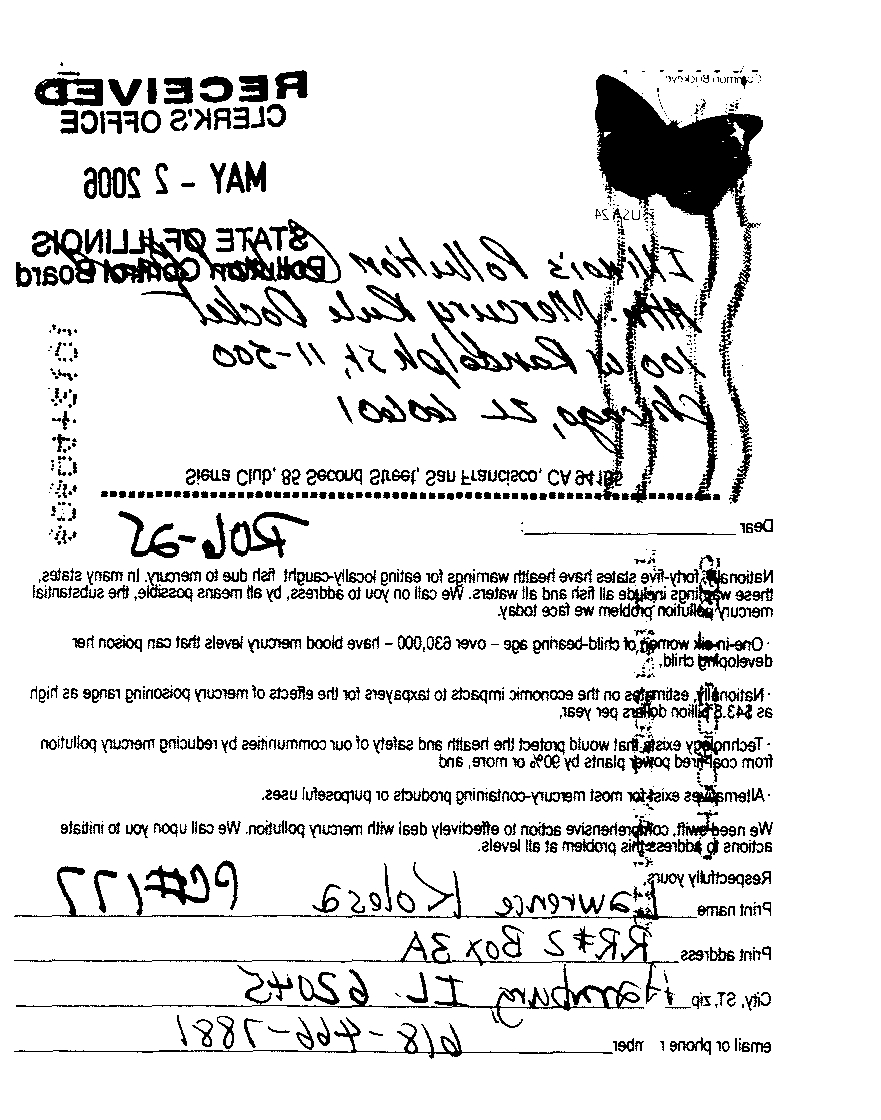 Common Buckeye
USA 24
RECEIVED
CLERK'S OFFICE
MAY - 2 2006
STATE OF ILLINOIS
Pollution Control Board
Illinois Pollution Control Board
Attn: Mercury Rule Docket
100 W Randolph St, 11-500
Chicago, IL 60601
Sierra Club, 85 Second Street, San Francisco, CA 94105
R06-25
Dear :
Nationally, forty-five states have health warnings for eating locally-caught fish due to mercury. In many states,
these warnings include all fish and all waters. We call on you to address, by all means possible, the substantial
mercury pollution problem we face today.
· One-in-six women of child-bearing age – over 630,000 – have blood mercury levels that can poison her
developing child,
· Nationally, estimates on the economic impacts to taxpayers for the effects of mercury poisoning range as high
as $43.8 billion dollars per year,
· Technology exists that would protect the health and safety of our communities by reducing mercury pollution
from coal-fired power plants by 90% or more, and
· Alternatives exist for most mercury-containing products or purposeful uses.
We need swift, comprehensive action to effectively deal with mercury pollution. We call upon you to initiate
actions to address this problem at all levels.
Respectfully yours,
PC#177
Print name Lawrence Kolesa
Print address RR#2 Box 3A
City, ST, zip Hamburg IL 62045
email or phone number 618-466-7881